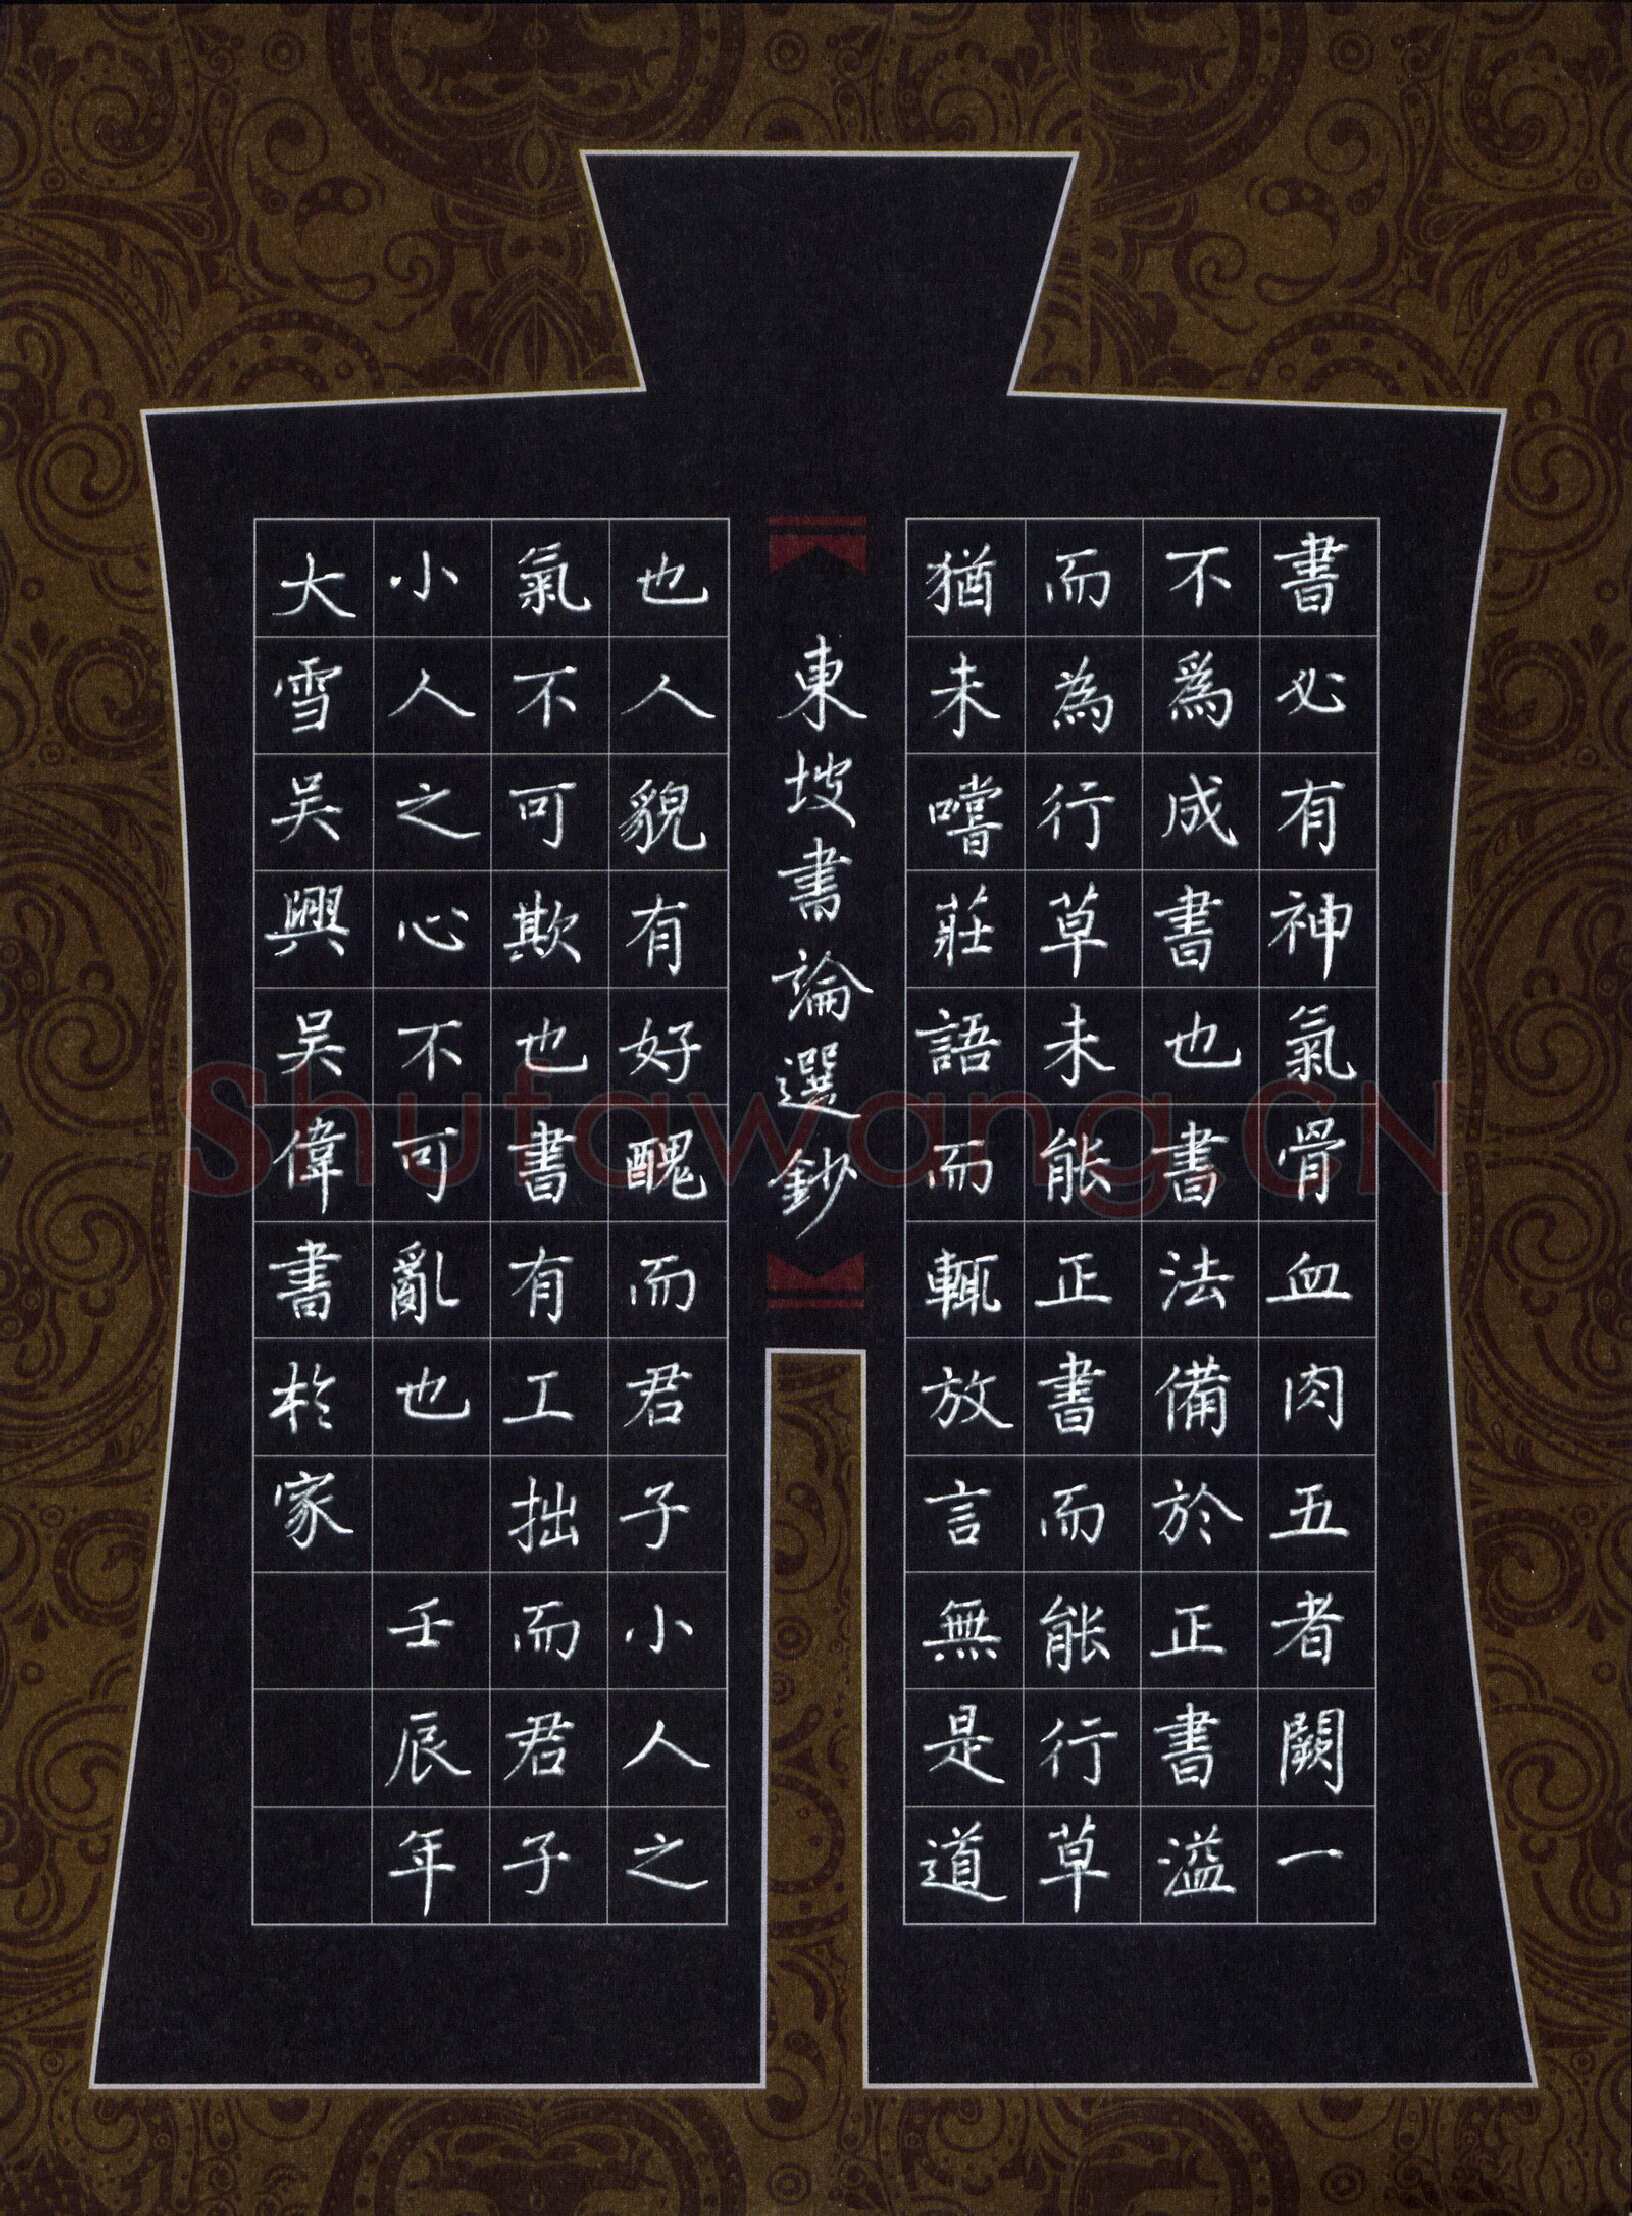 書必有神氣骨血肉五者闕一
不爲成書也書法備於正書溢
而為行草未能正書而能行草
猶未嚐莊語而輒放言無是道
東坡書論選鈔
也人貌有好醜而君子小人之
氣不可欺也書有工拙而君子
小人之心不可亂也 壬辰年
大雪吴興吴偉書於家
Shufawang.CN